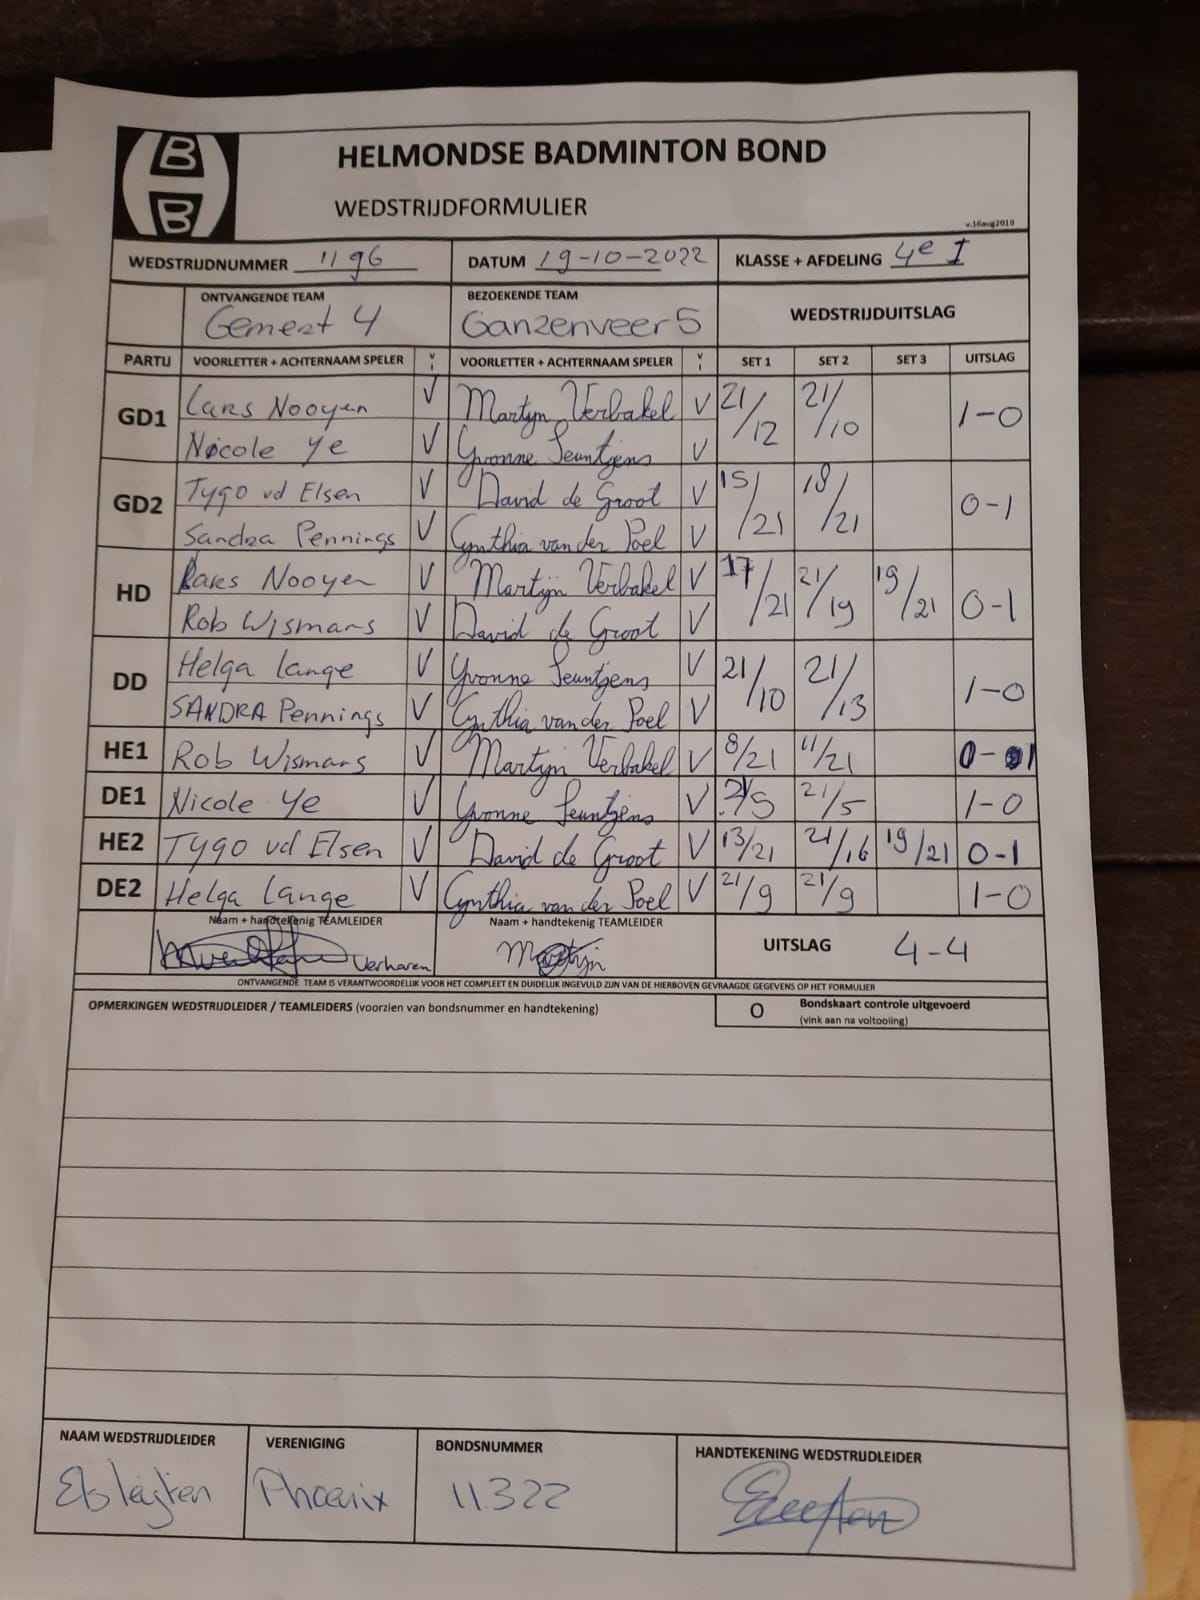 B
B
HELMONDSE BADMINTON BOND
WEDSTRIJDFORMULIER
v.16aug2010
WEDSTRIJDNUMMER 1196 DATUM 19-10-2022 KLASSE + AFDELING 4e I
ONTVANGENDE TEAM BEZOEKENDE TEAM WEDSTRIJDUITSLAG
Gemert 4 Ganzenveer 5
PARTIJ VOORLETTER + ACHTERNAAM SPELER V VOORLETTER + ACHTERNAAM SPELER V SET 1 SET 2 SET 3 UITSLAG
GD1 Lars Nooyen V Martijn Verbakel V 21/12 21/10 1-0
Nicole Ye V Yvonne Seuntjens V
GD2 Tygo vd Elsen V David de Groot V 15/21 18/21 0-1
Sandra Pennings V Cynthia van der Poel V
HD Lars Nooyen V Martijn Verbakel V 17/21 21/19 19/21 0-1
Rob Wismans V David de Groot V
DD Helga Lange V Yvonne Seuntjens V 21/10 21/13 1-0
SANDRA Pennings V Cynthia van der Poel V
HE1 Rob Wismans V Martijn Verbakel V 8/21 11/21 0-1
DE1 Nicole Ye V Yvonne Seuntjens V 21/5 21/5 1-0
HE2 Tygo vd Elsen V David de Groot V 13/21 21/16 19/21 0-1
DE2 Helga Lange V Cynthia van der Poel V 21/9 21/9 1-0
Naam + handtekenig TEAMLEIDER Naam + handtekening TEAMLEIDER UITSLAG 4-4
Verharen Martijn
ONTVANGENDE TEAM IS VERANTWOORDELIJK VOOR HET COMPLEET EN DUIDELIJK INGEVULD ZIJN VAN DE HIERBOVEN GEVRAAGDE GEGEVENS OP HET FORMULIER
OPMERKINGEN WEDSTRIJDLEIDER / TEAMLEIDERS (voorzien van bondsnummer en handtekening) O Bondskaart controle uitgevoerd
(vink aan na voltooiing)
NAAM WEDSTRIJDLEIDER VERENIGING BONDSNUMMER HANDTEKENING WEDSTRIJDLEIDER
Phoenix 11322